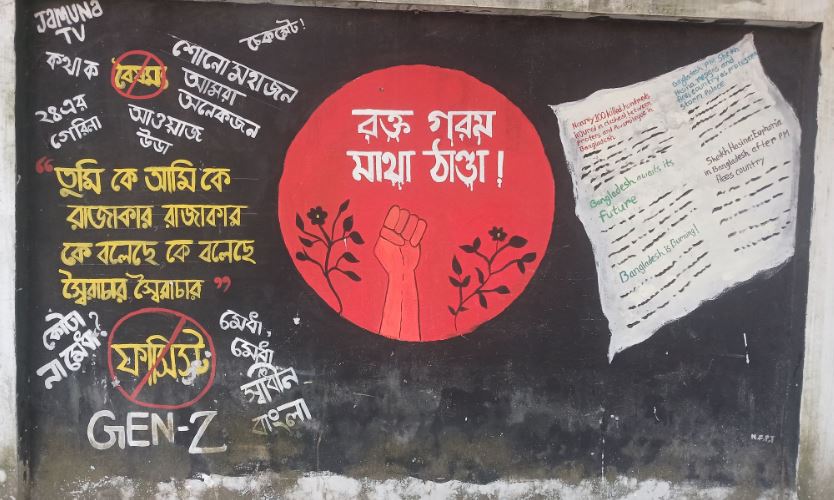 JAMUNA
TV
কথা ক
বৈষম্য
শোনো মহাজন
আমরা
অনেকজন
চেকমেট!
২৪এর
গেরিলা
আওয়াজ
উডা
"তুমি কে আমি কে
রাজাকার রাজাকার
কে বলেছে কে বলেছে
স্বৈরাচার স্বৈরাচার"
কোটা
না মেধা?
ফ্যাসিস্ট
মেধা,
মেধা
স্বাধীন
বাংলা
GEN-Z
রক্ত গরম
মাথা ঠাণ্ডা!
Nearly 100 killed hundreds
injured in clashes between
Bangladesh
Bangladesh awaits its
future
Bangladesh is Burning!
Bangladesh PM Sheikh
Hasina resigns and
flees country as protesters
storm Palace
Sheikh Hasina: Euphoria
in Bangladesh after PM
flees country